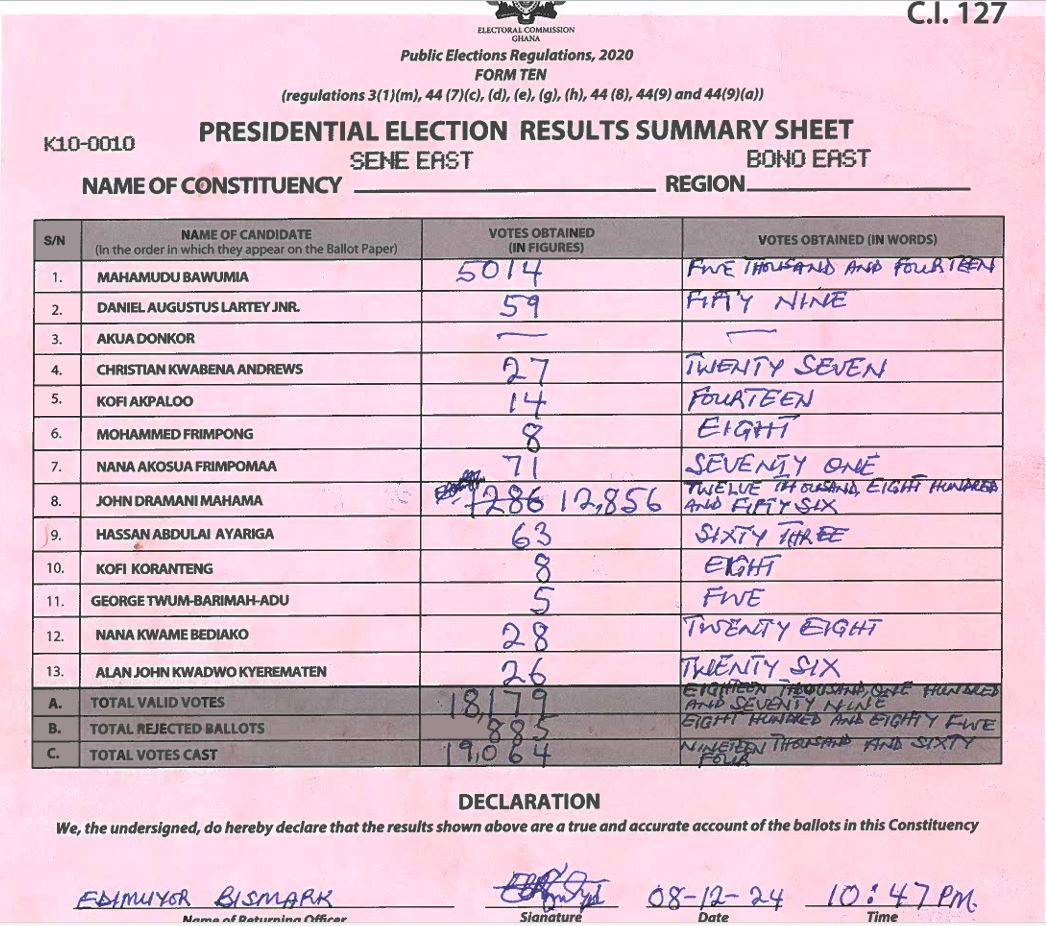 C.I. 127
ELECTORAL COMMISSION
GHANA
Public Elections Regulations, 2020
FORM TEN
(regulations 3(1)(m), 44 (7)(c), (d), (e), (g), (h), 44 (8), 44(9) and 44(9)(a))
K10-0010
PRESIDENTIAL ELECTION RESULTS SUMMARY SHEET
NAME OF CONSTITUENCY SENE EAST REGION BONO EAST
S/N NAME OF CANDIDATE (In the order in which they appear on the Ballot Paper) VOTES OBTAINED (IN FIGURES) VOTES OBTAINED (IN WORDS)
1. MAHAMUDU BAWUMIA 5014 FIVE THOUSAND AND FOURTEEN
2. DANIEL AUGUSTUS LARTEY JNR. 59 FIFTY NINE
3. AKUA DONKOR — —
4. CHRISTIAN KWABENA ANDREWS 27 TWENTY SEVEN
5. KOFI AKPALOO 14 FOURTEEN
6. MOHAMMED FRIMPONG 8 EIGHT
7. NANA AKOSUA FRIMPOMAA 71 SEVENTY ONE
8. JOHN DRAMANI MAHAMA 12,856 TWELVE THOUSAND, EIGHT HUNDRED AND FIFTY SIX
9. HASSAN ABDULAI AYARIGA 63 SIXTY THREE
10. KOFI KORANTENG 8 EIGHT
11. GEORGE TWUM-BARIMAH-ADU 5 FIVE
12. NANA KWAME BEDIAKO 28 TWENTY EIGHT
13. ALAN JOHN KWADWO KYEREMATEN 26 TWENTY SIX
A. TOTAL VALID VOTES 18,179 EIGHTEEN THOUSAND, ONE HUNDRED AND SEVENTY NINE
B. TOTAL REJECTED BALLOTS 885 EIGHT HUNDRED AND EIGHTY FIVE
C. TOTAL VOTES CAST 19,064 NINETEEN THOUSAND AND SIXTY FOUR
DECLARATION
We, the undersigned, do hereby declare that the results shown above are a true and accurate account of the ballots in this Constituency
BISMARK 08-12-24 10:47 PM.
Name of Returning Officer Signature Date Time